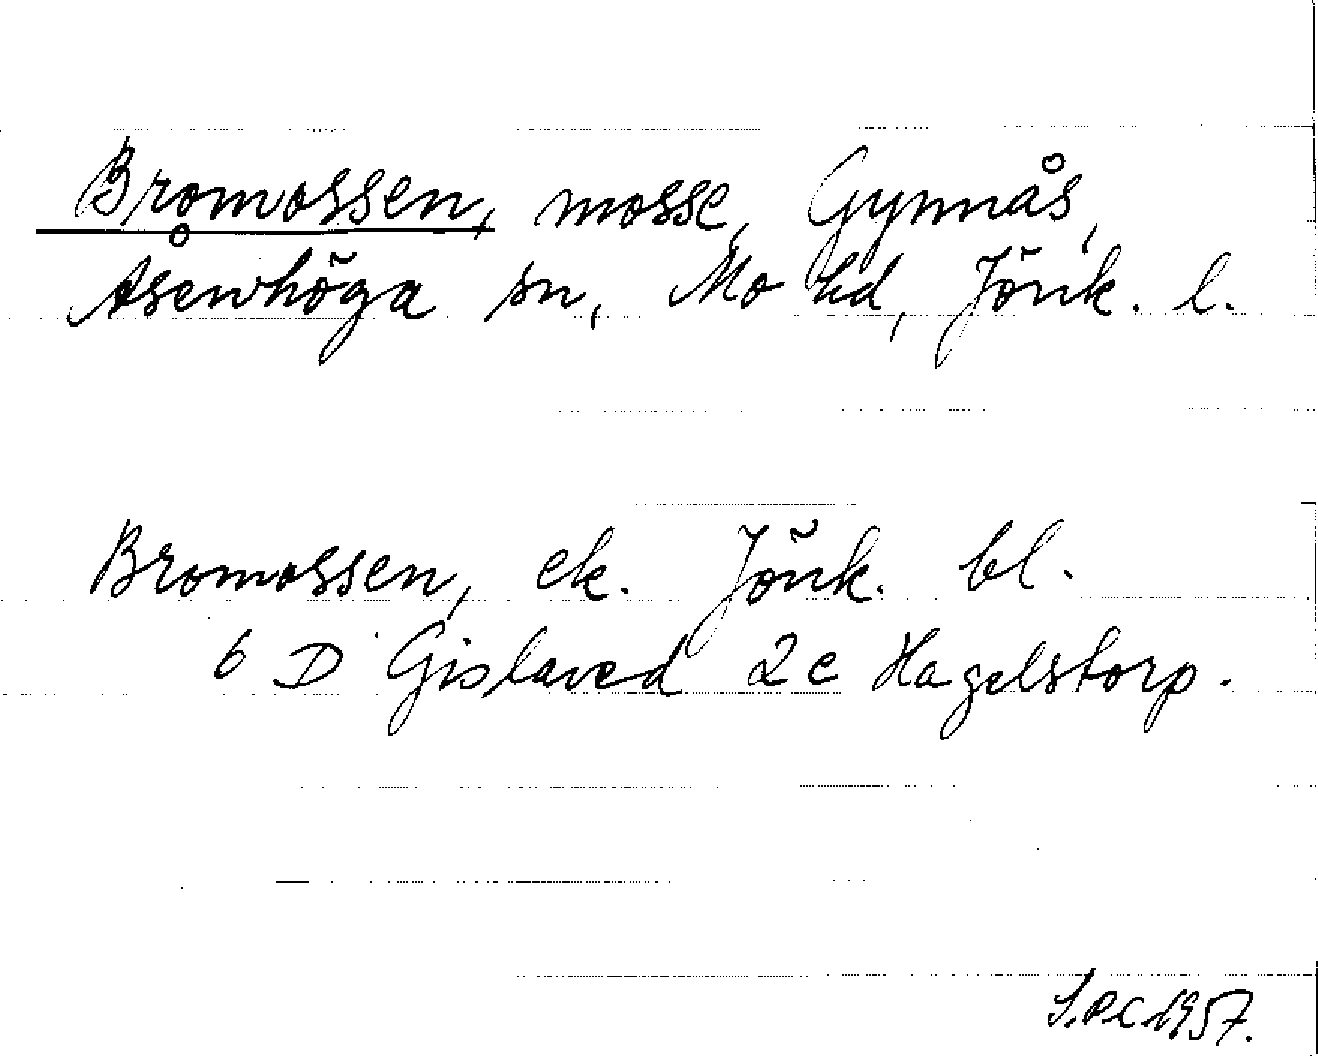 Bromossen, mosse, Gynnås,
Åsenhöga sn, Mo hd, Jönk. l.
Bromossen, ek. Jönk. bl.
6 D Gislaved 2e Hagelstorp.
1957.